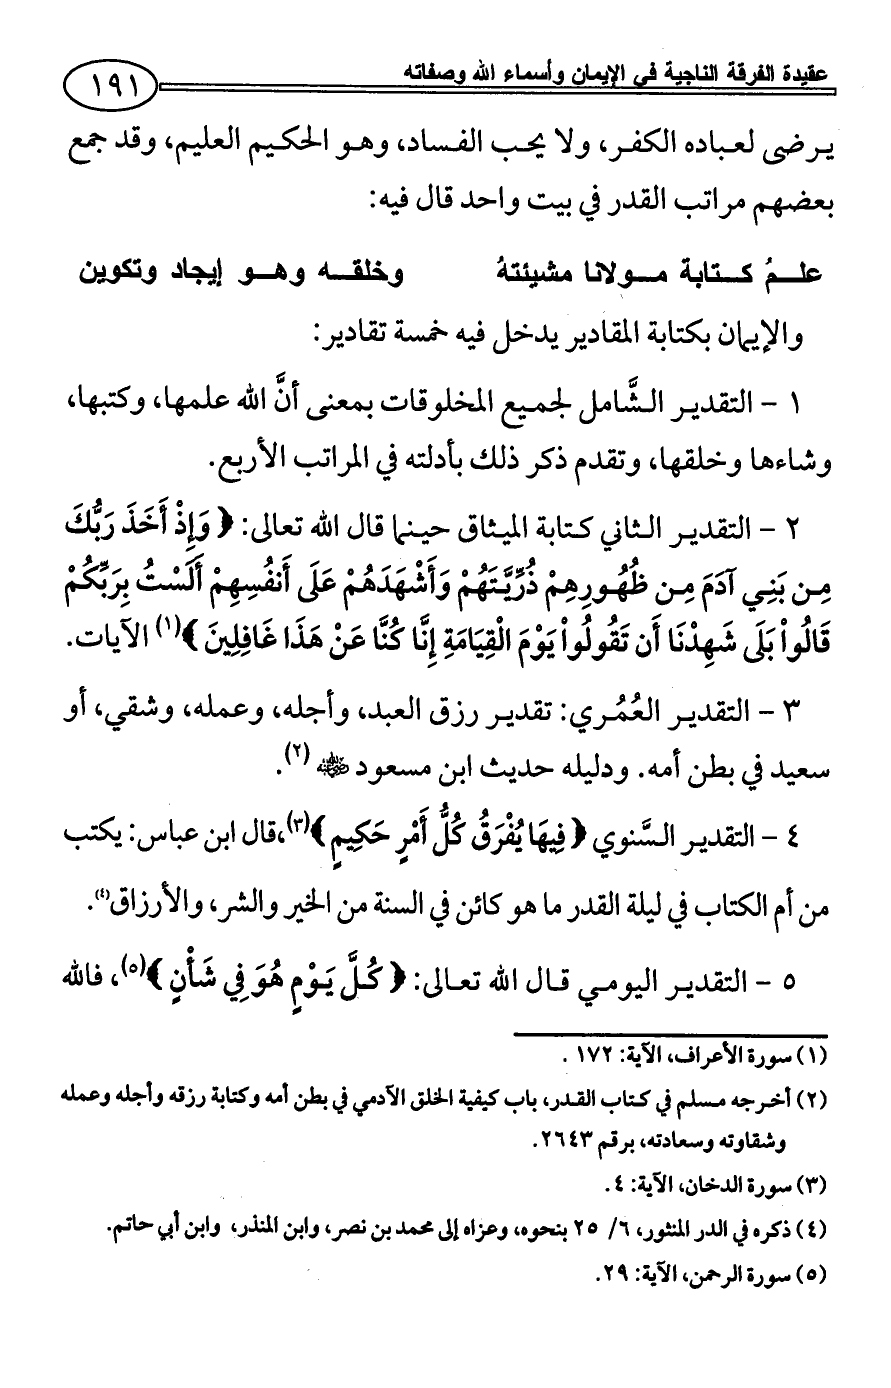 عقيدة الفرقة الناجية في الإيمان وأسماء الله وصفاته
١٩١
يرضى لعباده الكفر، ولا يحب الفساد، وهو الحكيم العليم، وقد جمع
بعضهم مراتب القدر في بيت واحد قال فيه:
علمُ كتابة مولانا مشيئتهُ وخلقه وهو إيجاد وتكوين
والإيمان بكتابة المقادير يدخل فيه خمسة تقادير:
١ - التقدير الشَّامل لجميع المخلوقات بمعنى أنَّ الله علمها، وكتبها،
وشاءها وخلقها، وتقدم ذكر ذلك بأدلته في المراتب الأربع.
٢ - التقدير الثاني كتابة الميثاق حينما قال الله تعالى: ﴿وَإِذْ أَخَذَ رَبُّكَ
مِن بَنِي آدَمَ مِن ظُهُورِهِمْ ذُرِّيَّتَهُمْ وَأَشْهَدَهُمْ عَلَى أَنفُسِهِمْ أَلَسْتُ بِرَبِّكُمْ
قَالُواْ بَلَى شَهِدْنَا أَن تَقُولُواْ يَوْمَ الْقِيَامَةِ إِنَّا كُنَّا عَنْ هَذَا غَافِلِينَ﴾(١) الآيات.
٣ - التقدير العُمُري: تقدير رزق العبد، وأجله، وعمله، وشقي، أو
سعيد في بطن أمه. ودليله حديث ابن مسعود ﵁ (٢).
٤ - التقدير السَّنوي ﴿فِيهَا يُفْرَقُ كُلُّ أَمْرٍ حَكِيمٍ﴾(٣)،قال ابن عباس: يكتب
من أم الكتاب في ليلة القدر ما هو كائن في السنة من الخير والشر، والأرزاق(٤).
٥ - التقدير اليومي قال الله تعالى: ﴿كُلَّ يَوْمٍ هُوَ فِي شَأْنٍ﴾(٥)، فالله
(١) سورة الأعراف، الآية: ١٧٢ .
(٢) أخرجه مسلم في كتاب القدر، باب كيفية الخلق الآدمي في بطن أمه وكتابة رزقه وأجله وعمله
وشقاوته وسعادته، برقم ٢٦٤٣.
(٣) سورة الدخان، الآية: ٤.
(٤) ذكره في الدر المنثور، ٦/ ٢٥ بنحوه، وعزاه إلى محمد بن نصر، وابن المنذر، وابن أبي حاتم.
(٥) سورة الرحمن، الآية: ٢٩.